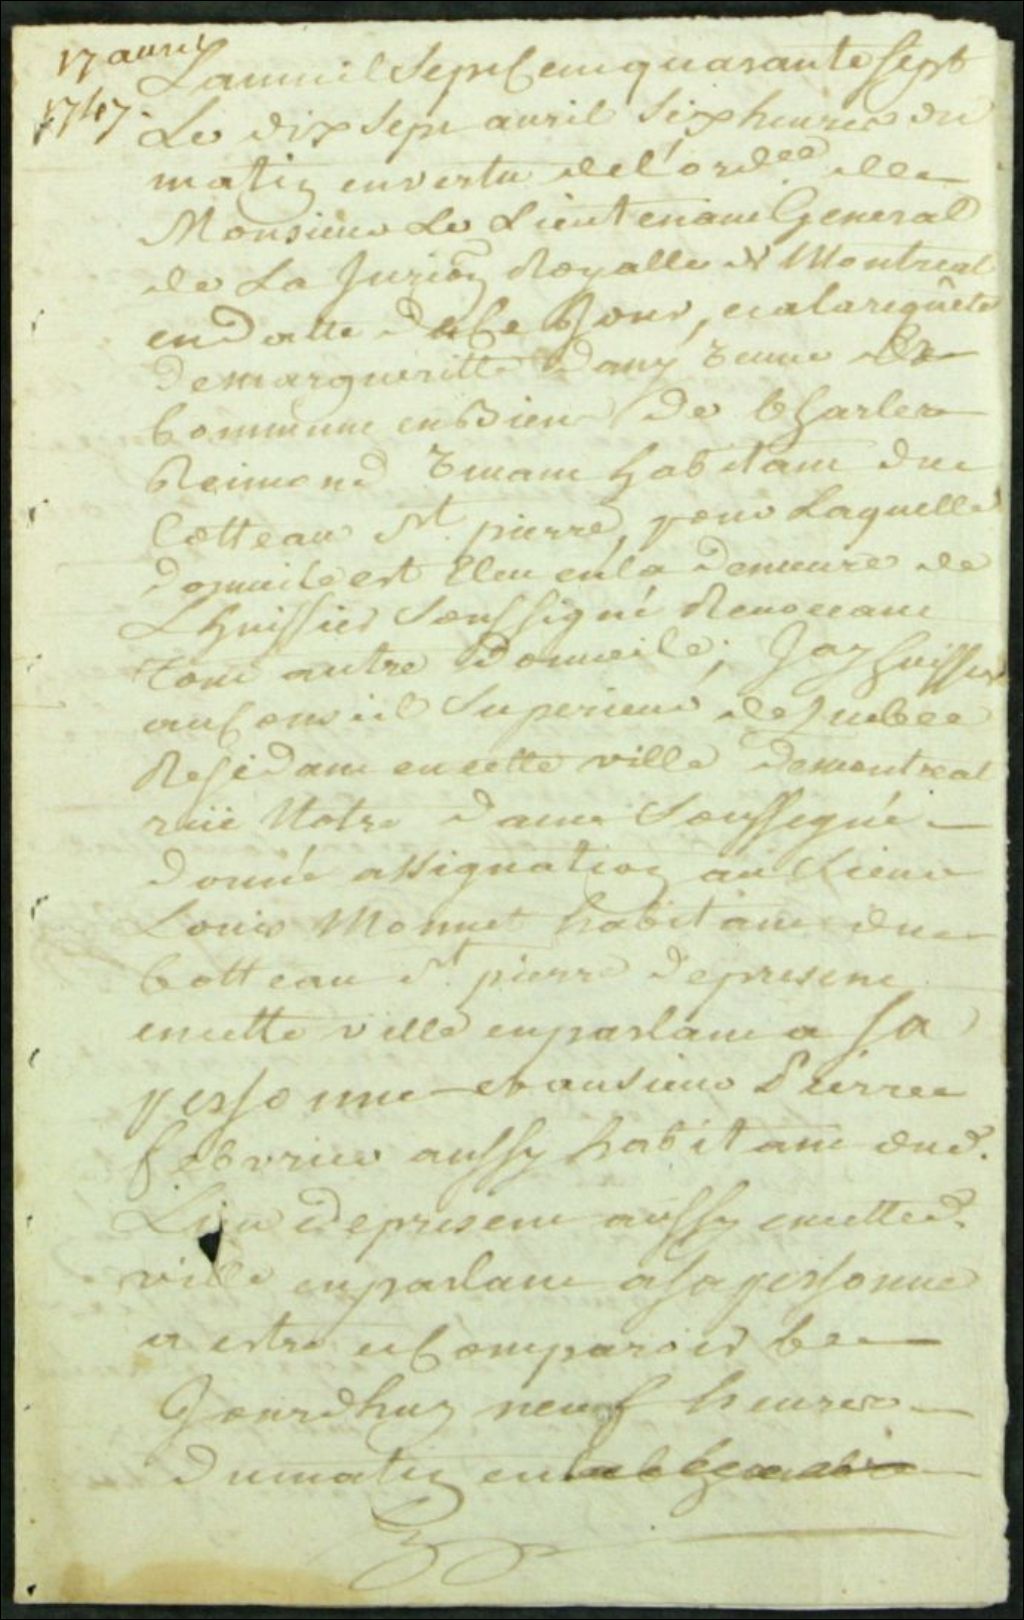 17 avril
1747.
Lan mil Sept Cent quarante Sept
Le dix Sept avril Six heures du
matin en vertu de l'ordce de
Monsieur Le Lieutenant General
de La Juri̅on̅ Royalle de Montreal
en datte de Ce Jour, et a la requête
de margueritte Dany femme
Commune en Biens de Charles
Reimond Tenant habitant du
Cotteau St. pierre, pour Laquelle
domicile est Eleu en la demeure de
L huissier Soussigné Renoncant
tout autre Domicile, Jay huissier
au Conseil Superieur de quebec
Residant en cette ville de montreal
rüe Notre dame Soussigné
donné assignation au Sieur
Louis Monnet habitant du
Cotteau St. pierre de present
en cette ville en parlant a sa
personne et au Sieur Pierre
febvrier aussy habitant dud.
Lieu de present aussy en cetted.
ville en parlant a sa personne
a estre et Comparoir Ce
Jourdhuy neuf heures
du matin en